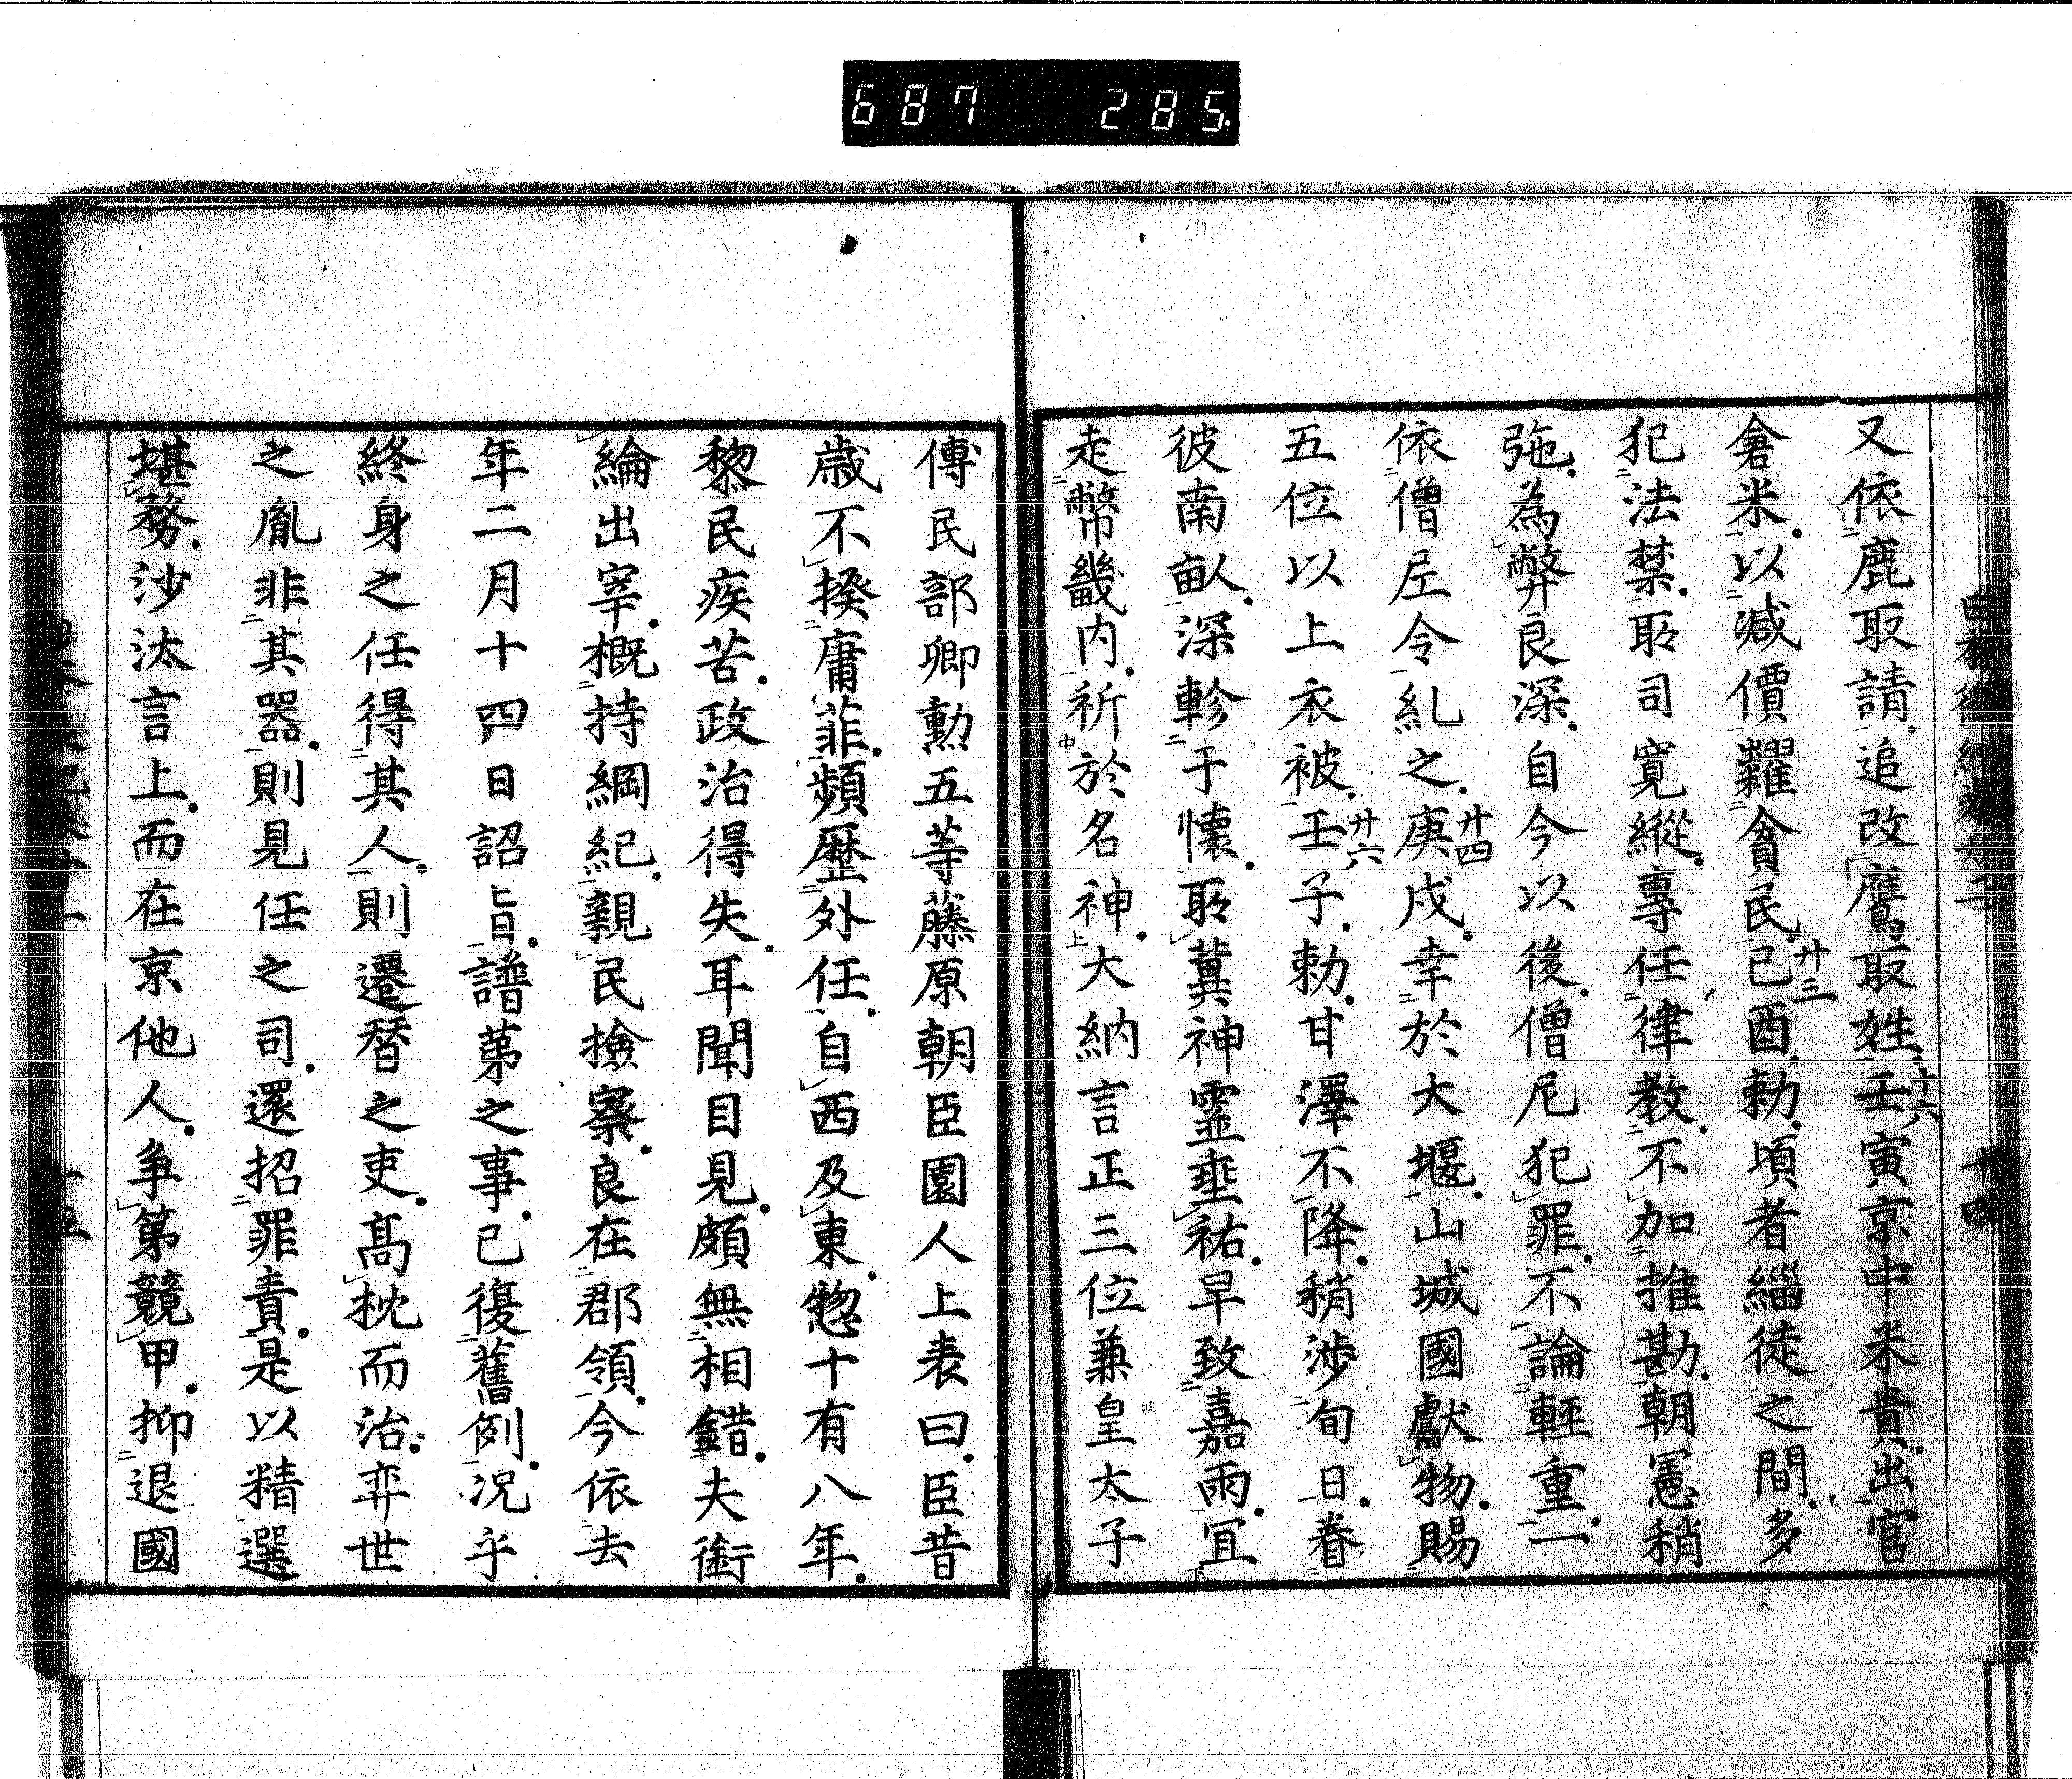 687 285
又依鹿取請追改鷹取姓十六壬寅京中米貴出官
倉米以减價糶貧民廿三己酉勅頃者緇徒之間多
犯法禁所司寛縱專任律教不加推勘朝憲稍
弛為弊良深自今以後僧尼犯罪不論輕重一
依僧尼令糺之廿四庚戌幸於大堰山城國獻物賜
五位以上衣被廿六壬子勅甘澤不降稍渉旬日眷
彼南畝深軫于懷所冀神靈垂祐早致嘉雨宜
走幣畿内祈於名神大納言正三位兼皇太子
傅民部卿勲五等藤原朝臣園人上表曰臣昔
歳不揆庸菲頻歴外任自西及東惣十有八年
黎民疾苦政治得失耳聞目見頗無相錯夫銜
綸出宰概持綱紀親民撿察良在郡領今依去
年二月十四日詔旨譜第之事已復舊例况乎
終身之任得其人則遷替之吏高枕而治弈世
之胤非其器則見任之司還招罪責是以精選
堪務沙汰言上而在京他人争第競甲抑退國